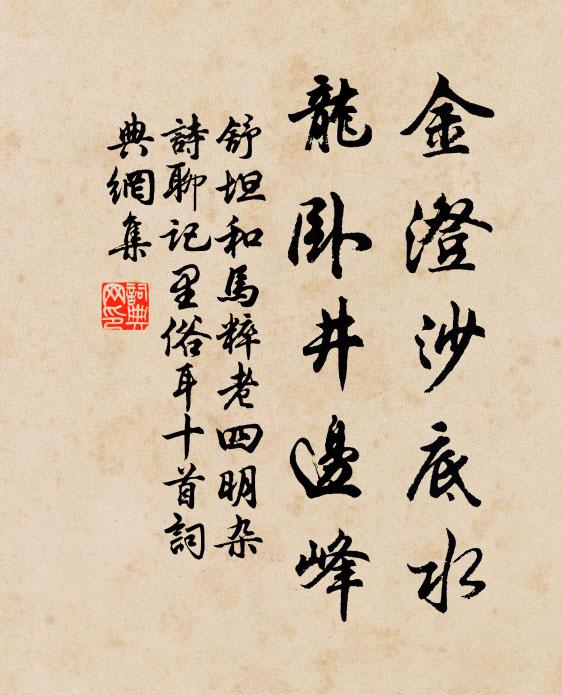 金澄沙底水
龍卧井邊峰
舒坦和馬粹老四明杂
詩聊記里俗耳十首詞
典網集
詞典網印